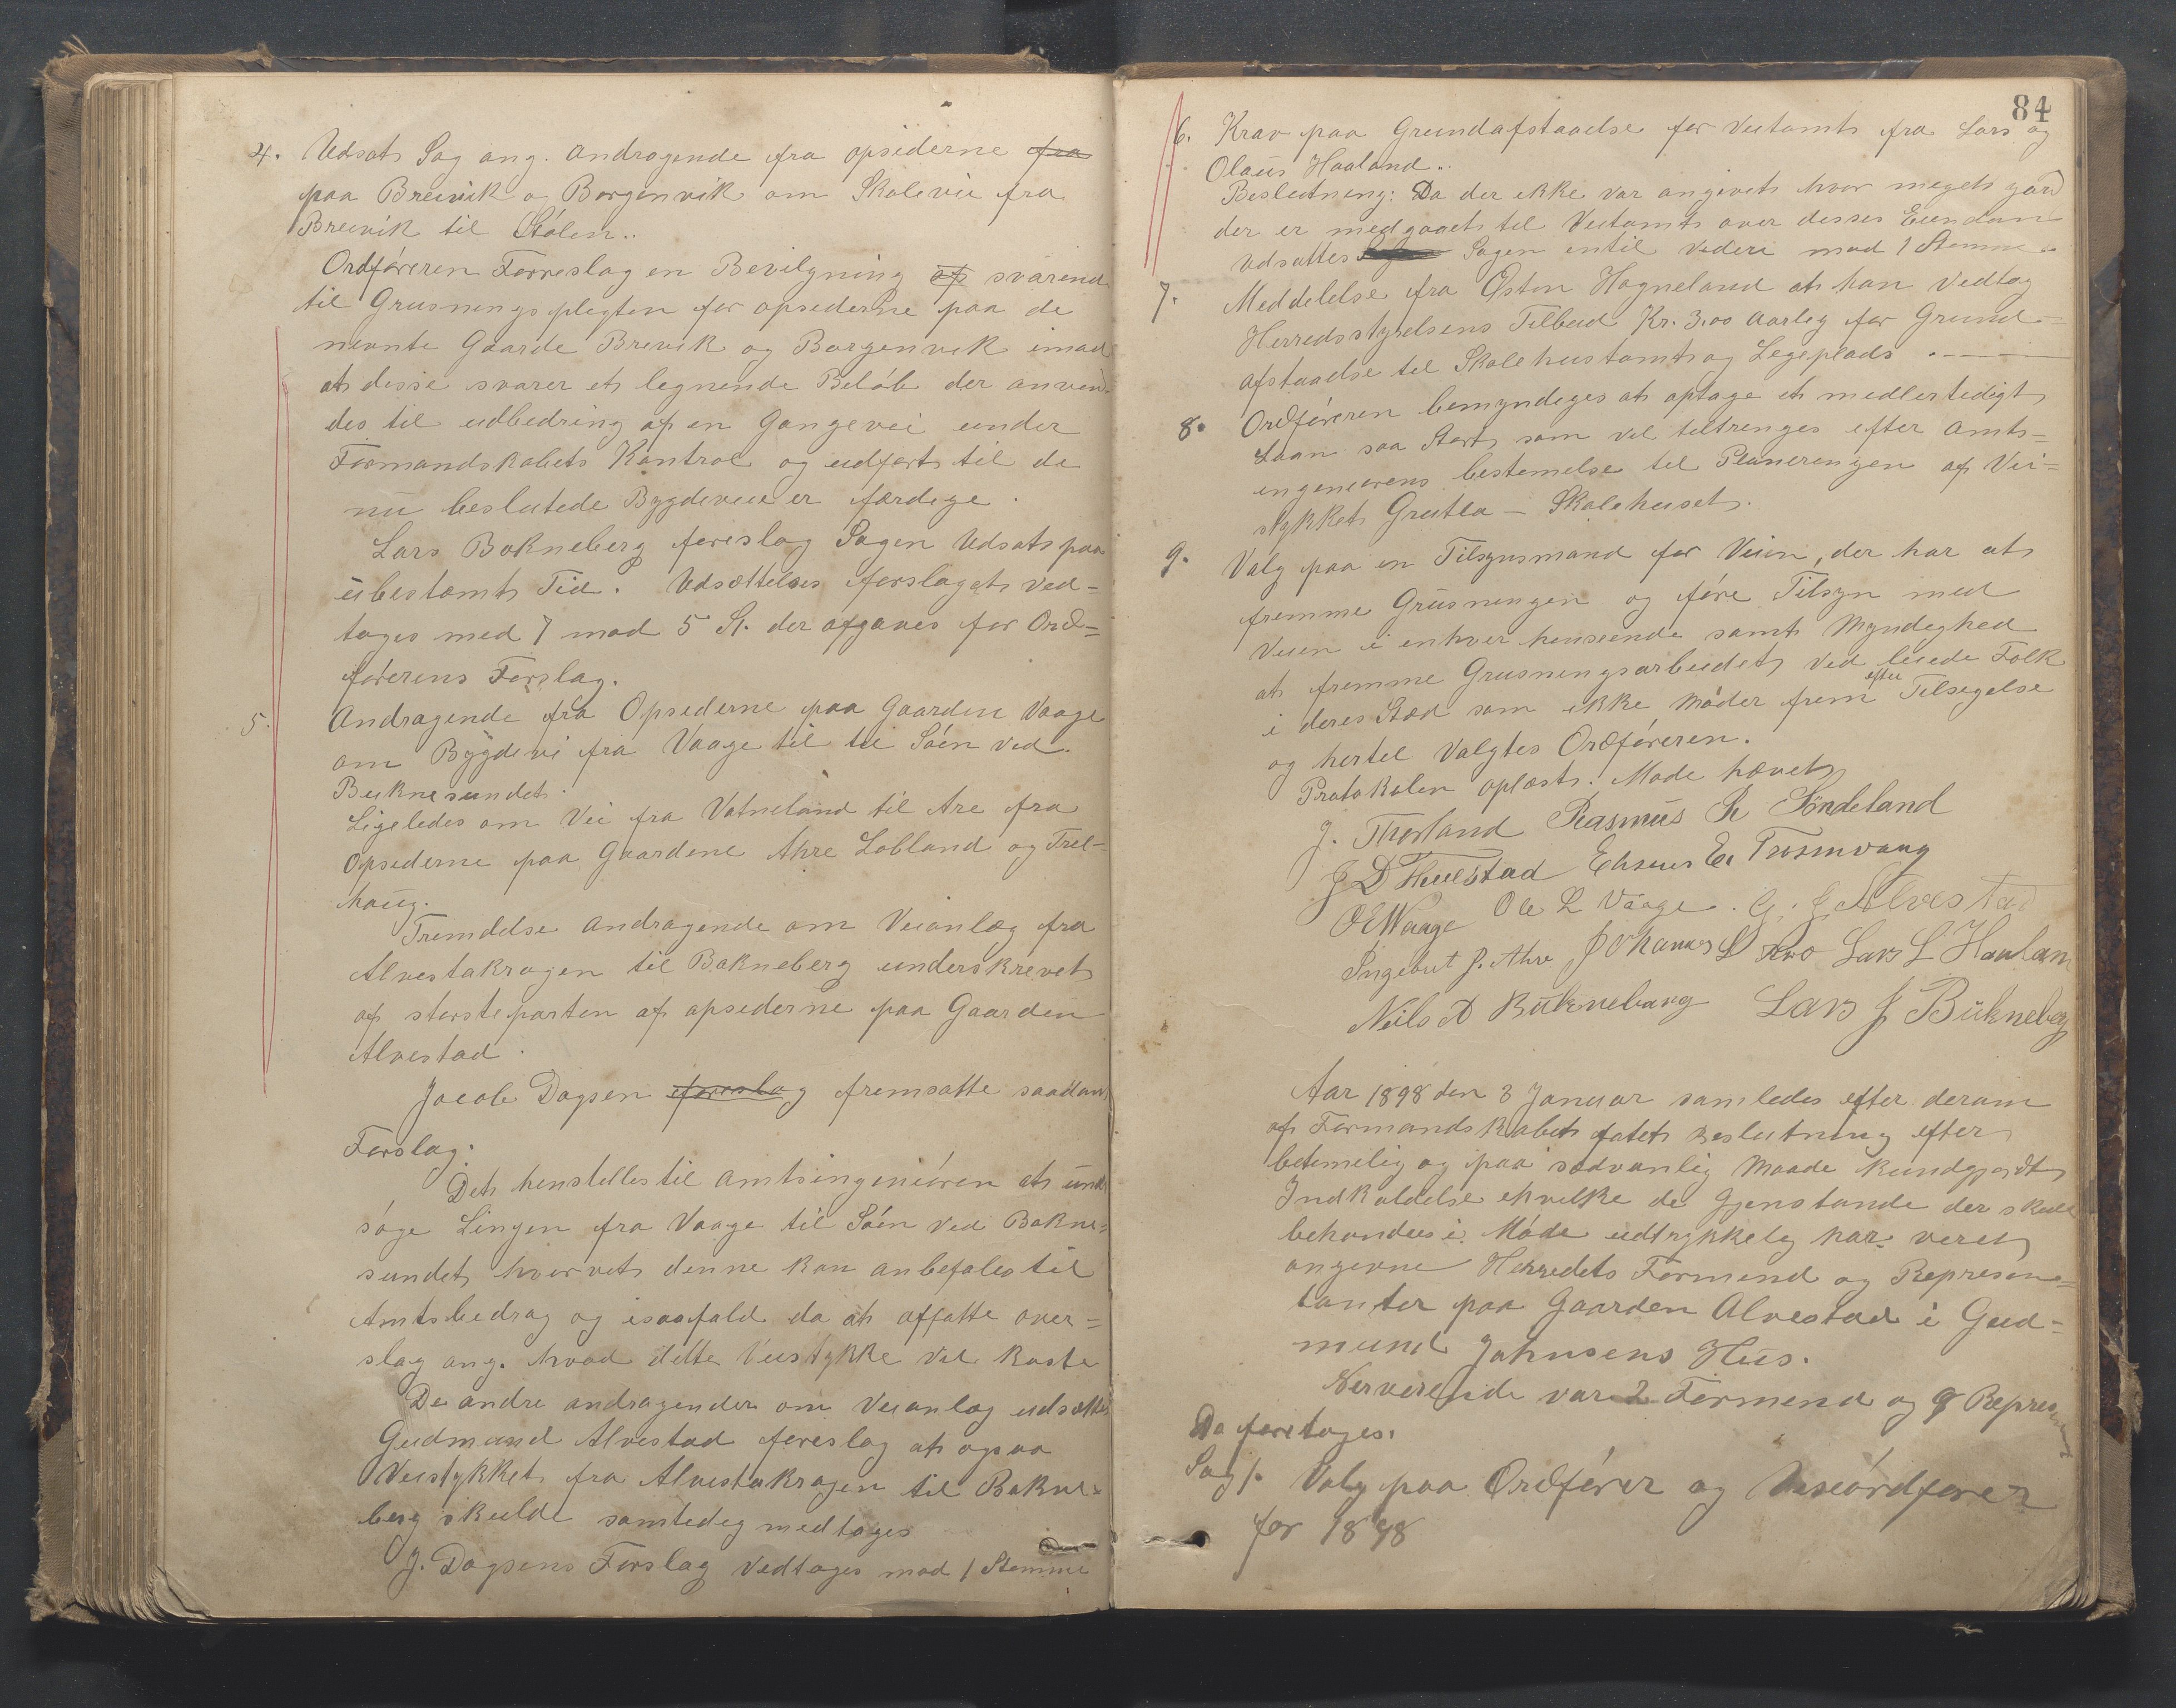 4. Udsat Sag ang. Andragende fra opsiderne fra
paa Breivik og Borgenvik om Skolevei fra
Breivik til Stölen..
Ordföreren Forreslag en Bevilgning af svarend
til Grusningspligten for opsiderne paa de
nevnte Gaarde Brevik og Borgenvik imod
at disse svarer et lignende Belöb der anven-
des til udbedring af en Gangevei under
Formandskabets Kontrol og udfört til de
nu beslutede Bygdeveie er færdige.
Lars Bokneberg foreslog Sagen Udsat paa
ubestemt Tid. Udsættelses forslaget ved=
toges med 7 mod 5 St. der afgaves for Ord=
förerens Forslag.
5. Andragende fra Opsiderne paa Gaarden Vaage
om Bygdevei fra Vaage til til Söen ved
Buknesundet.
Ligeledes om Vei fra Vatneland til Are fra
Opsiderne paa Gaardene Ahre Lobland og Trel-
haug.
Fremdelse Andragende om Veianlæg fra
Alvestakragen til Bokneberg underskrevet
af störsteparten af opsiderne paa Gaarden
Alvestad.
Jacob Dagsen foreslog fremsatte saadan
Forslag:
Det henstilles til Amtsingeniören at und
söge Lingen fra Vaage til Söen ved Bokne=
sundet, hvorvet denne kan anbefales til
Amtsbedrag og isaafald da at affatte over=
slag ang. hvad dette Veistykke vil koste
De andre andragender om Veianlæg udsættes
Gudmund Alvestad foreslog at ogsaa
Veistykket fra Alvestakragen til Bokne=
berg skulde samtidig medtages
J. Dagsens Forslag Vedtoges mod 1 Stemme
84
6. Krav paa Grundafstaaelse for Veitomt fra Lars og
Olaus Haaland..
Beslutning: Da der ikke var angivet hvor meget jord
der er medgaaet til Veitomt over disses Eiendom
udsattes Sagen intil videre mod 1 Stemme.
7. Meddelelse fra Østen Hogneland at han Vedtog
Herredsstyrelsens Tilbud Kr. 3.00 Aarlig for Grund=
afstaaelse til Skolehustomt og Legeplads.
8. Ordföreren bemyndiges at optage et medlertidigt
Laan saa Stort som vil tiltrenges efter Amts=
ingeniörens bestemelse til Planeringen af Vei=
stykket Grutla – Skolehuset.
9. Valg paa en Tilsynsmand for Veien, der har at
fremme Grusningen og före Tilsyn med
Veien i enhver henseende samt Myndighed
at fremme Grusningsarbeidet ved leiede Folk
i deres Sted som ikke möder frem efter Tilsigelse
og hertil Valgtes Ordföreren.
Protokolen oplæst. Möde hævet
J. Thorland Rasmus R Söndeland
J D Huestad Ehseus E. Trosnavaag
O E Waage Ole L Vaage. G. J Alvestad
Ingebret J. Ahre Johannes L Are Lars L Haaland
Neils A Bukneberg Lars J Bukneberg
Aar 1898 den 3 Januar samledes efter derom
af Formandskabet fatet Beslutning efter
betimelig og paa sædvanlig Maade kundgjordt
Indkaldelse ehvilke de Gjenstande der skulde
behandles i Möde udtrykkelig har veret
angivne Herredets Formend og Represen=
tanter paa Gaarden Alvestad i Gud=
mund Johnsens Hus.
Nerverende var 2 Formend og 9 Represent
Da foretoges.
Sag 1. Valg paa Ordförer og Viseordförer
for 1898